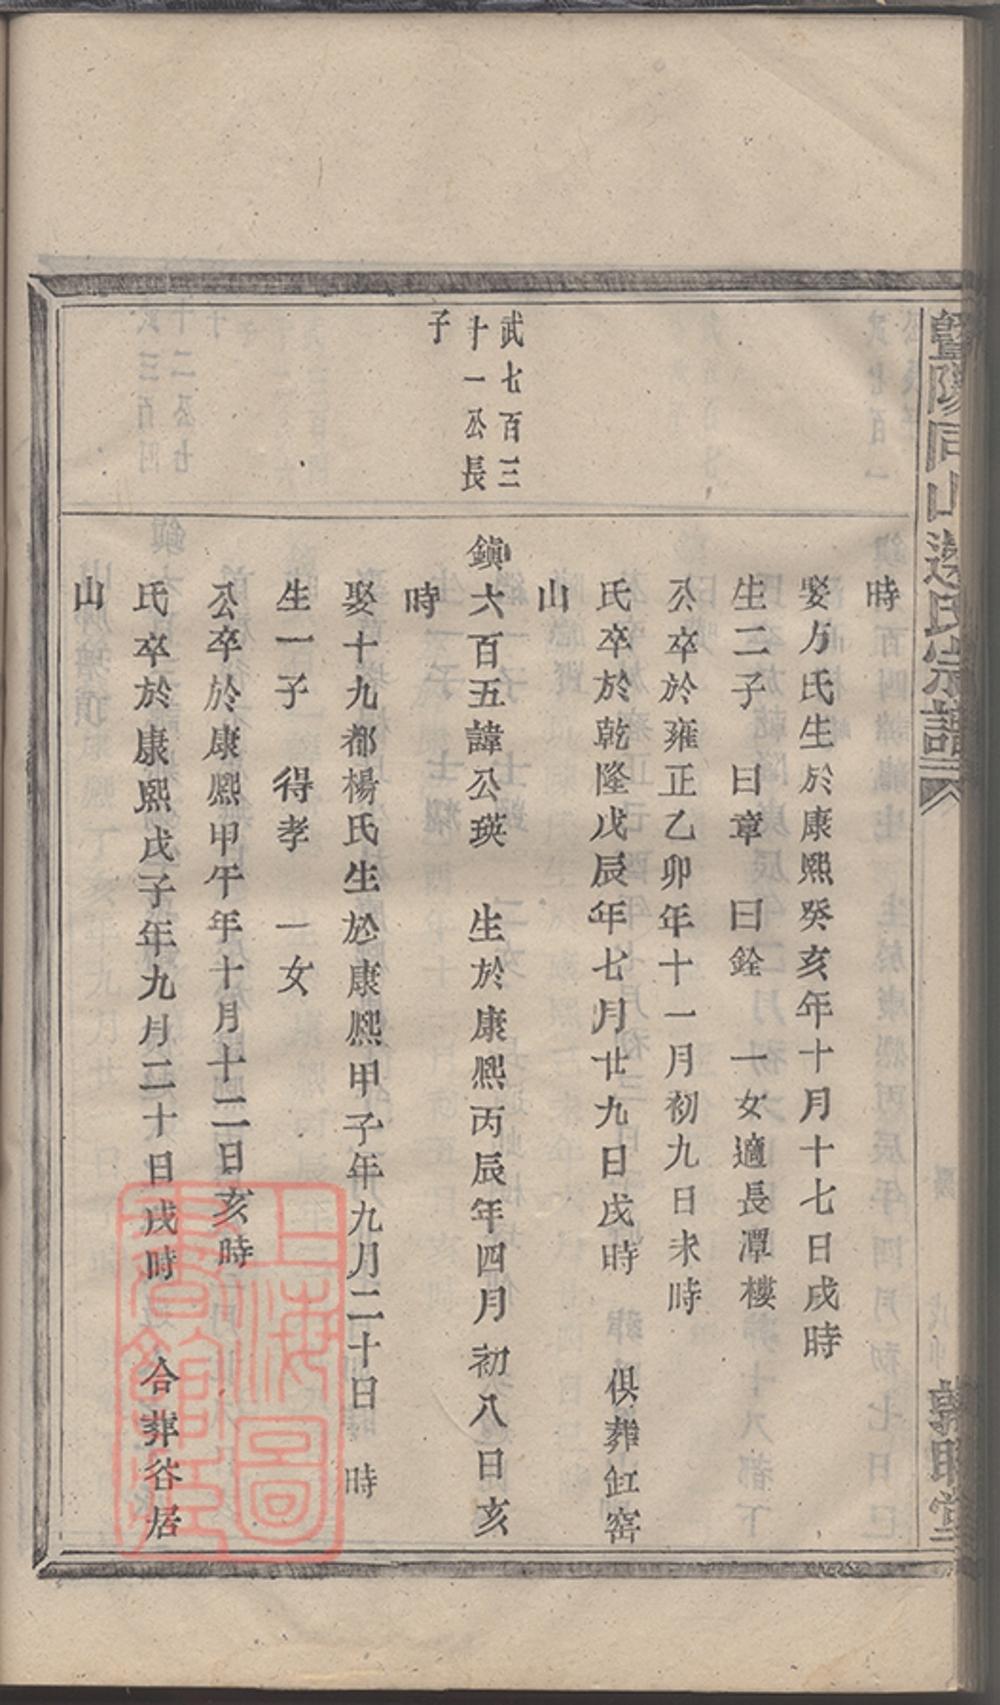 暨陽同山邊氏宗譜
敦睦堂
武七百三
十一公長
子
時
娶方氏生於康熙癸亥年十月十七日戌時
生二子　曰章　曰銓　一女適長潭樓
公卒於雍正乙卯年十一月初九日未時
氏卒於乾隆戊辰年七月廿九日戌時　俱葬缸窰
山
鎭六百五諱公瑛　生於康熙丙辰年四月初八日亥
時
娶十九都楊氏生於康熙甲子年九月二十日　時
生一子　得孝　一女
公卒於康熙甲午年十月十二日亥時
氏卒於康熙戊子年九月二十日戌時　合葬峇居
山
上海圖書館藏